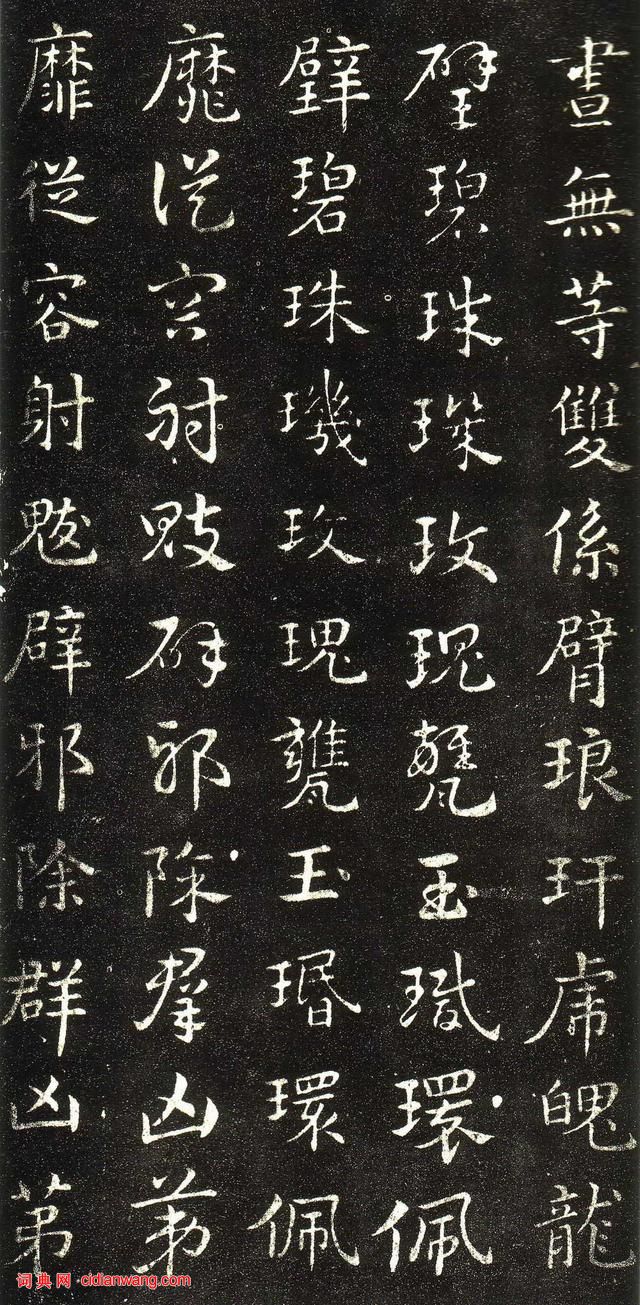 畫無等雙係臂琅玕虎魄龍
璧碧珠璣玫瑰甕玉瑉環佩
璧碧珠璣玫瑰甕玉瑉環佩
靡從容射魃辟邪除群凶第
靡從容射魃辟邪除群凶第
词典网·cidianwang.com